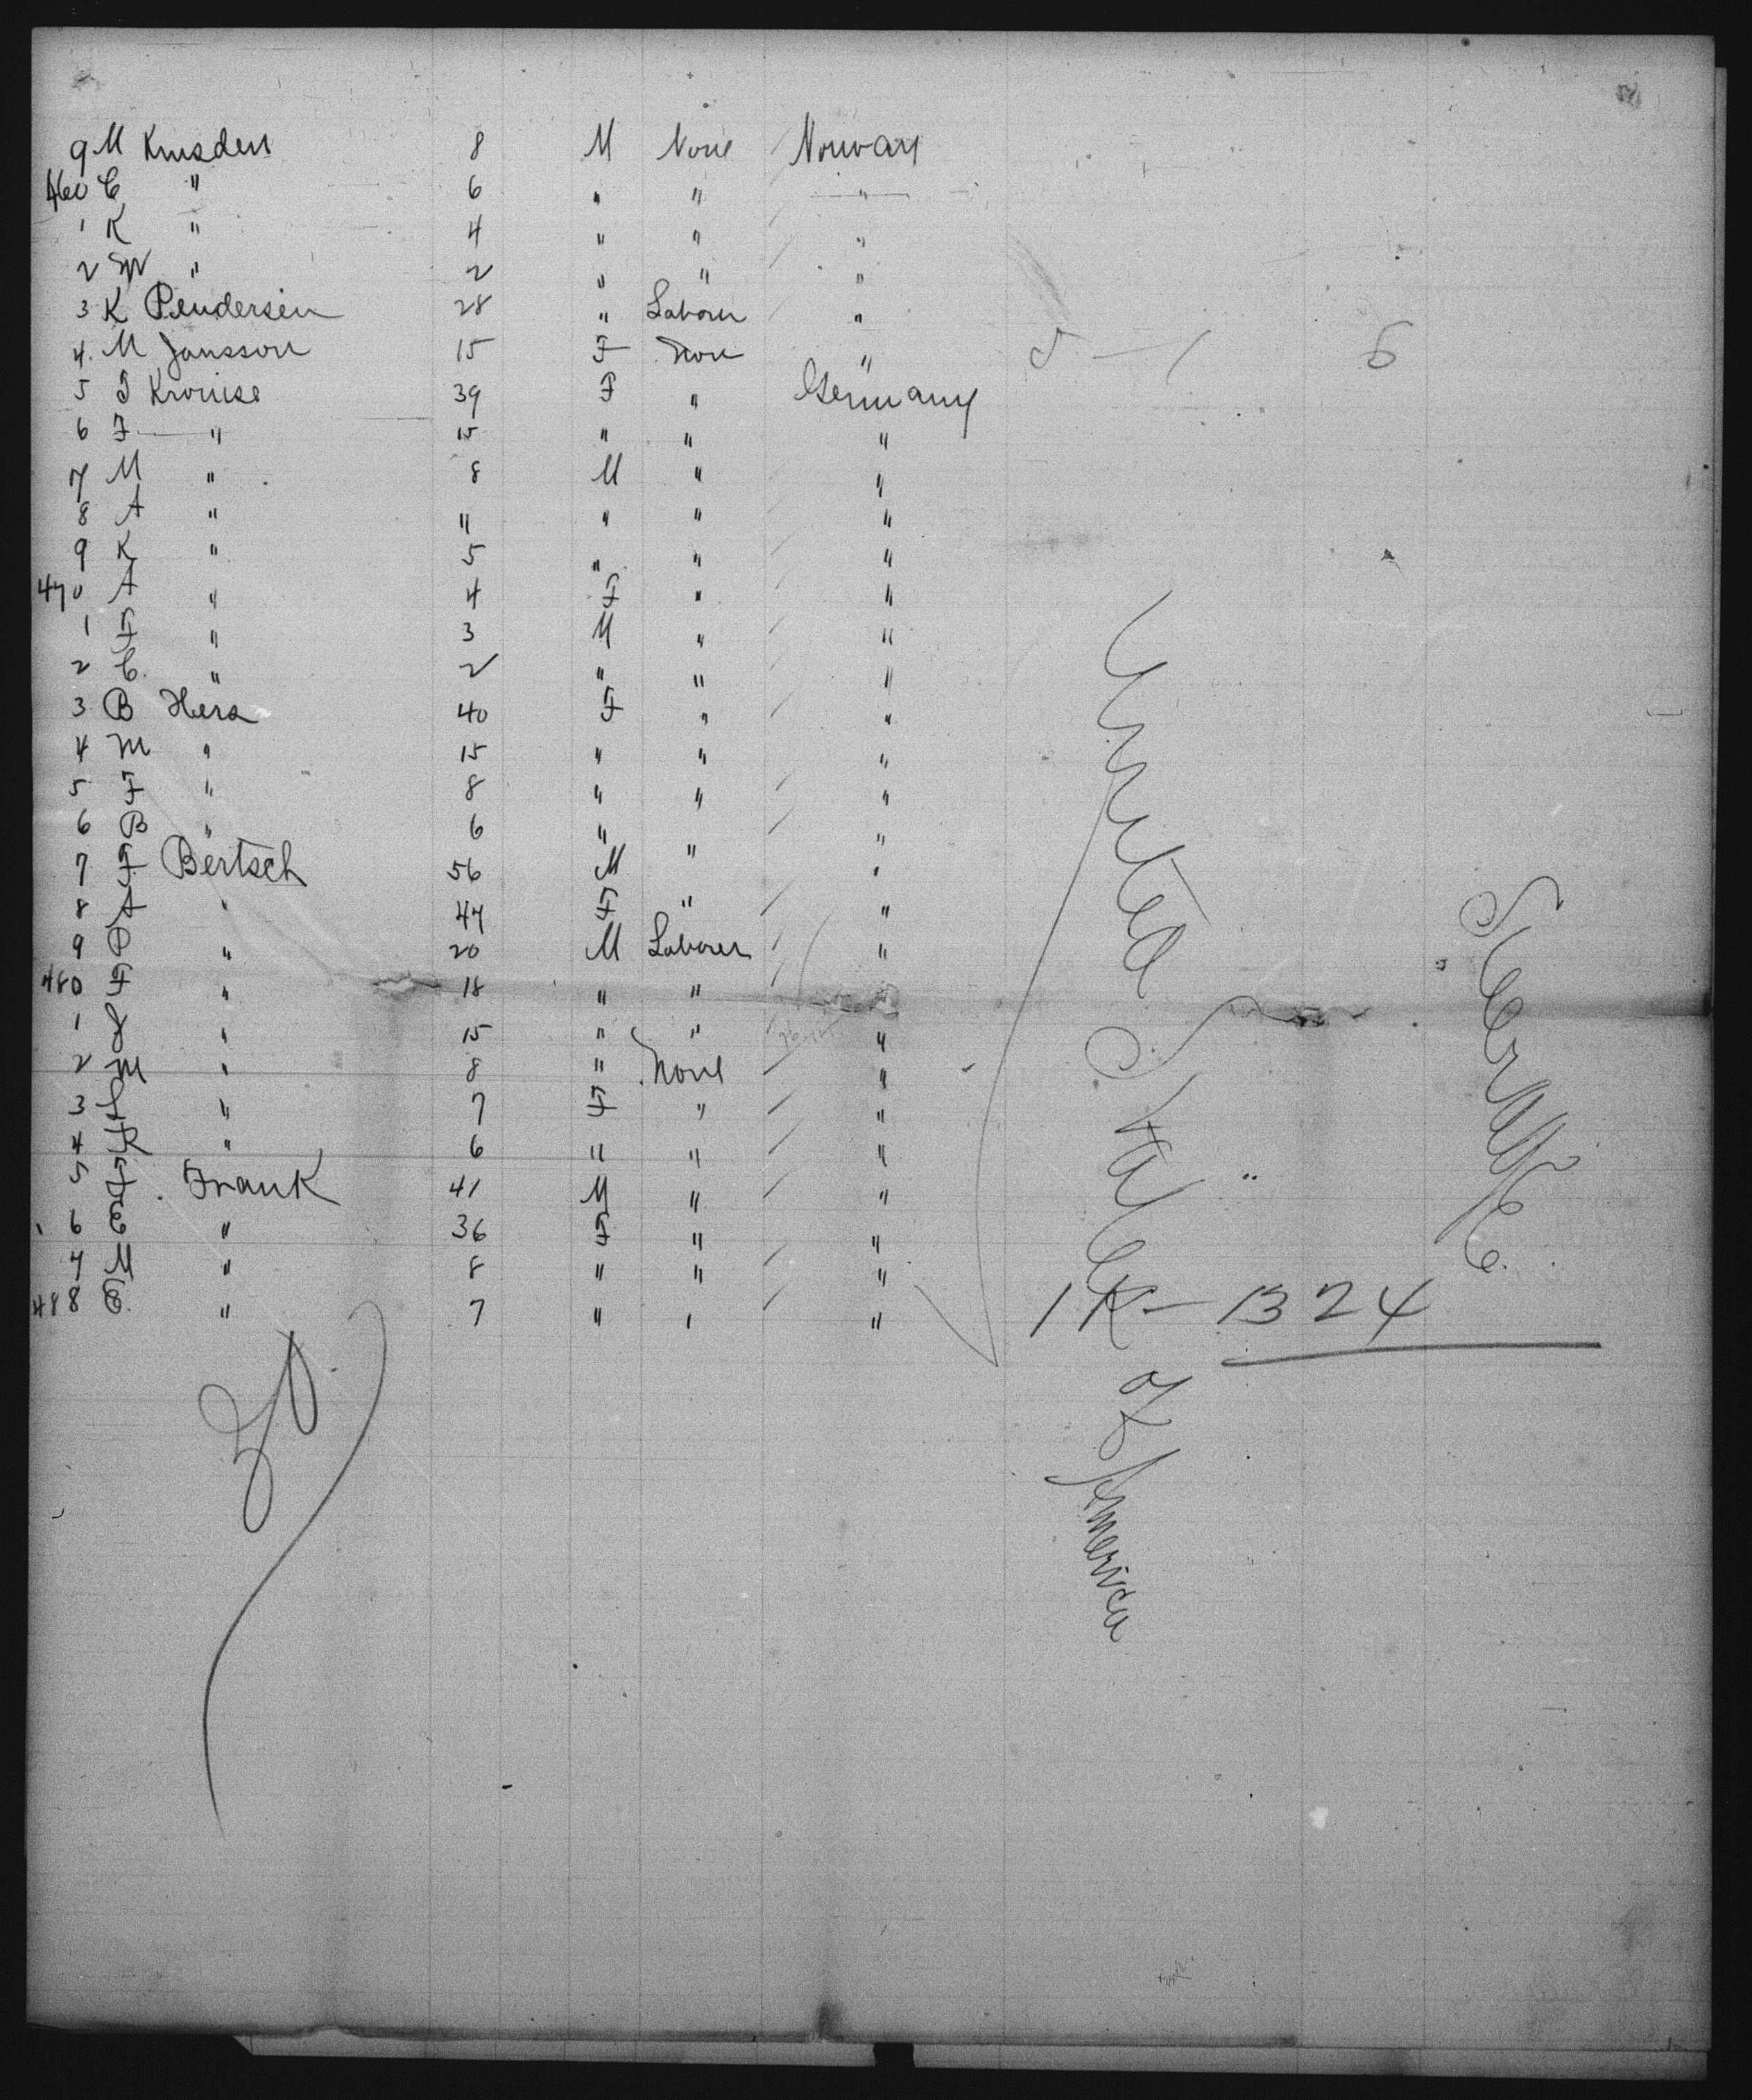 9 M Knusden 8 M None Norway
460 C " 6 " " "
1 K " 4 " " "
2 W " 2 " " "
3 K Pendersen 28 " Laborer "
4. M Jansson 15 F None "
5 Krouise 39 F " Germany
6 F " 15 " " "
7 M " 8 M " "
8 A " 11 " " "
9 K " 5 " " "
470 A " 4 F " "
1 F " 3 M " "
2 C. " 2 " " "
3 B Hera 40 F " "
4 M " 15 " " "
5 F " 8 " " "
6 B " 6 " " "
7 F Bertsch 56 M " "
8 A " 47 F " "
9 P " 20 M Laborer "
480 F " 18 " " "
1 " 15 " " "
2 M " 8 " None "
3 " 7 F " "
4 K " 6 " " "
5 F Frank 41 M " "
6 E " 36 F " "
7 M " 8 " " "
488 E. " 7 " " "
United States of America
Steerage.
1K - 1324